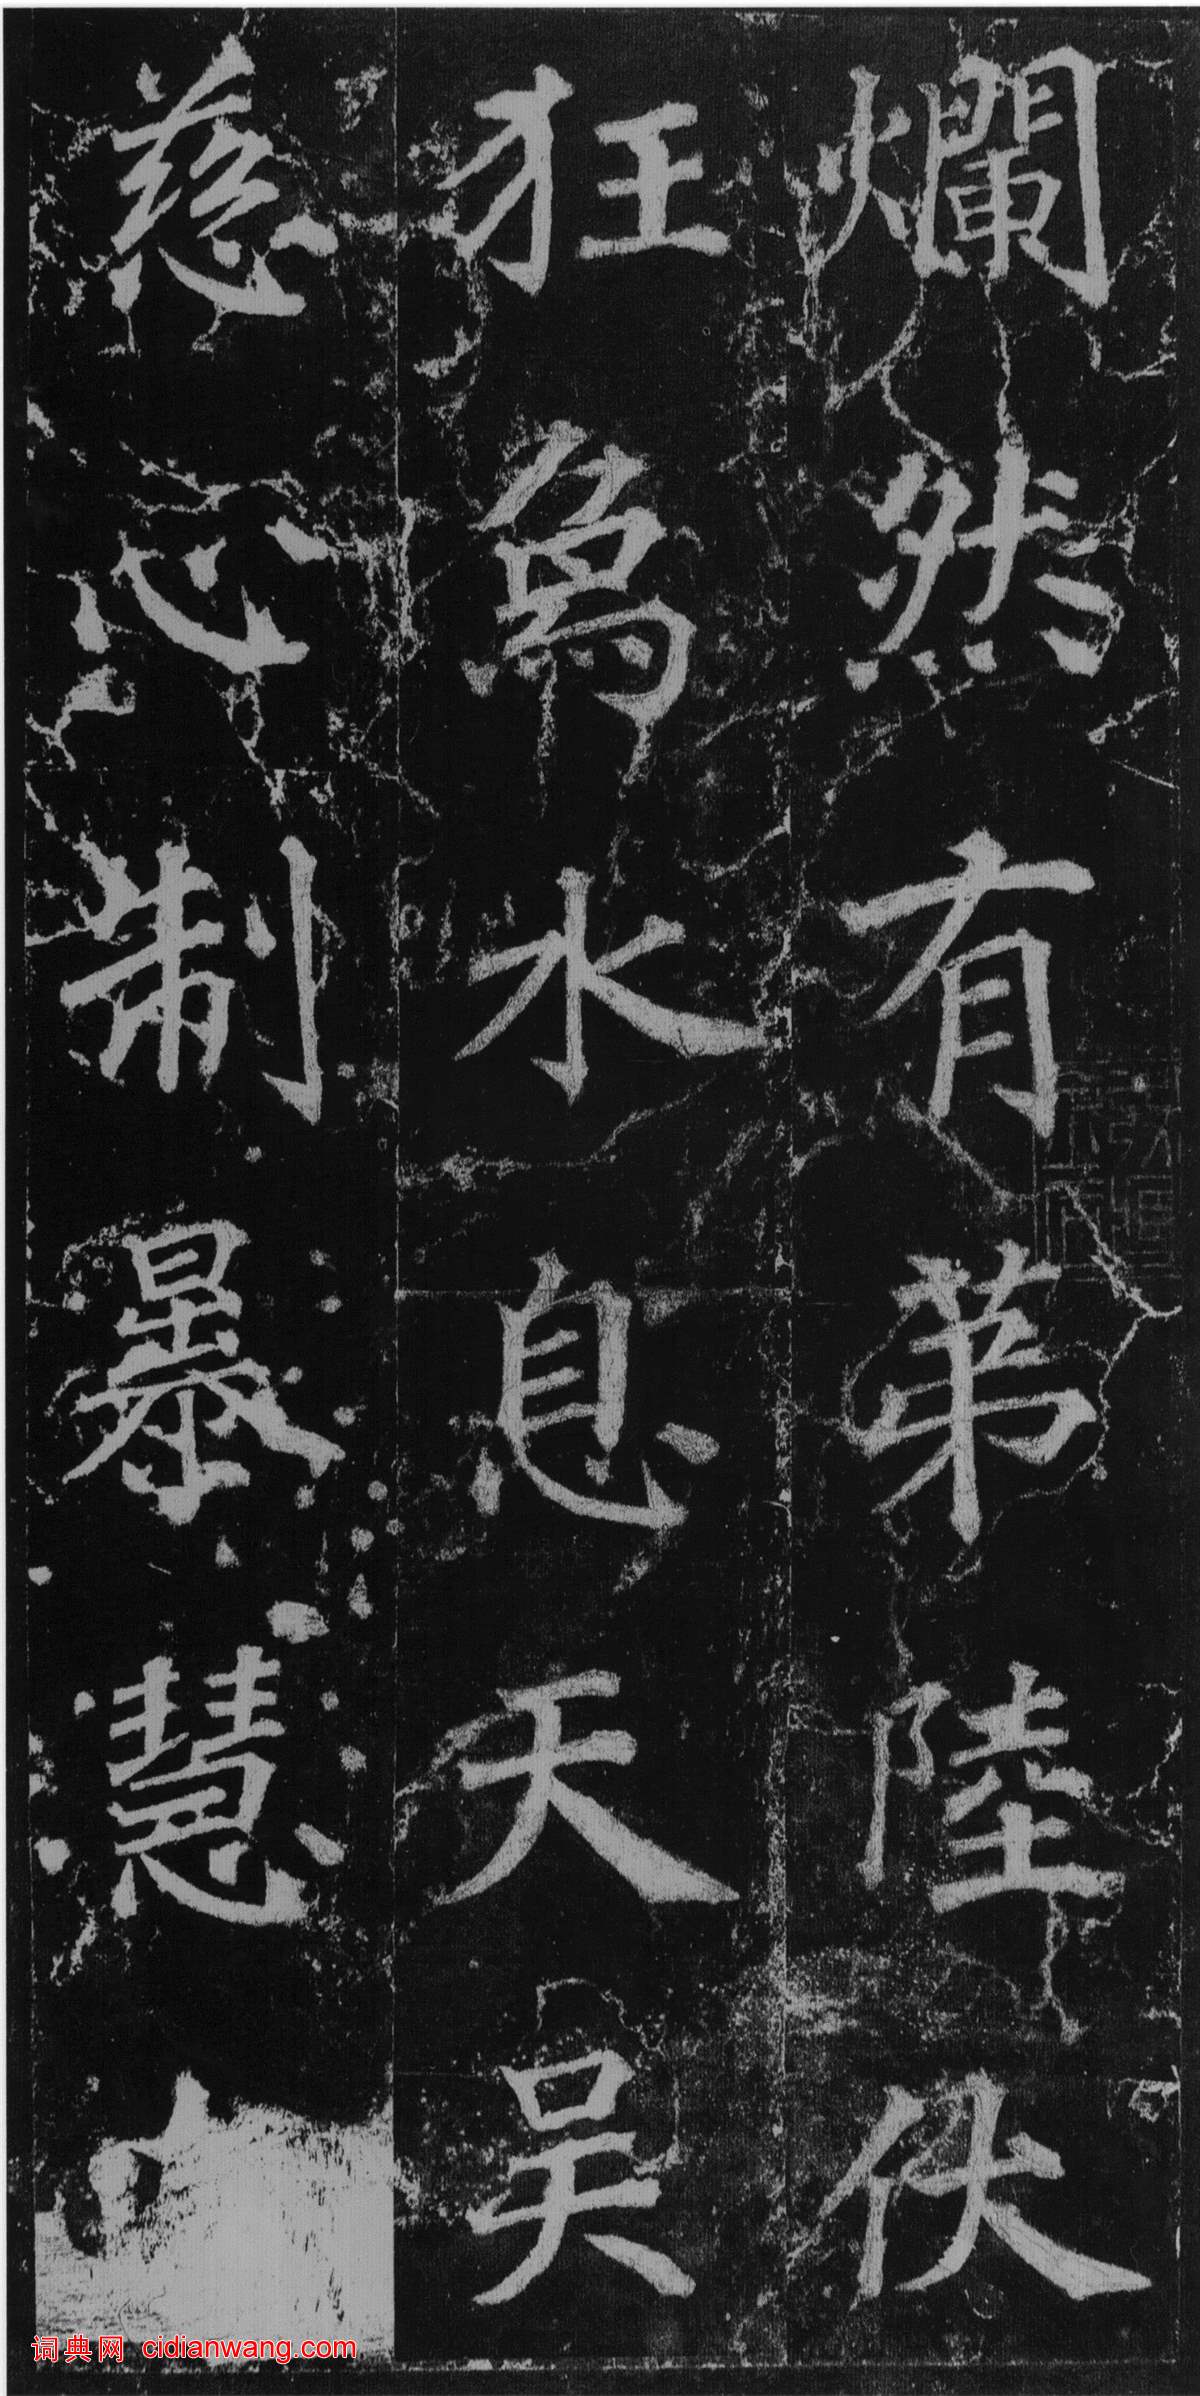 爛然有第陸伏
狂爲水息天吴
慈心制暴慧
词典网 cidianwang.com